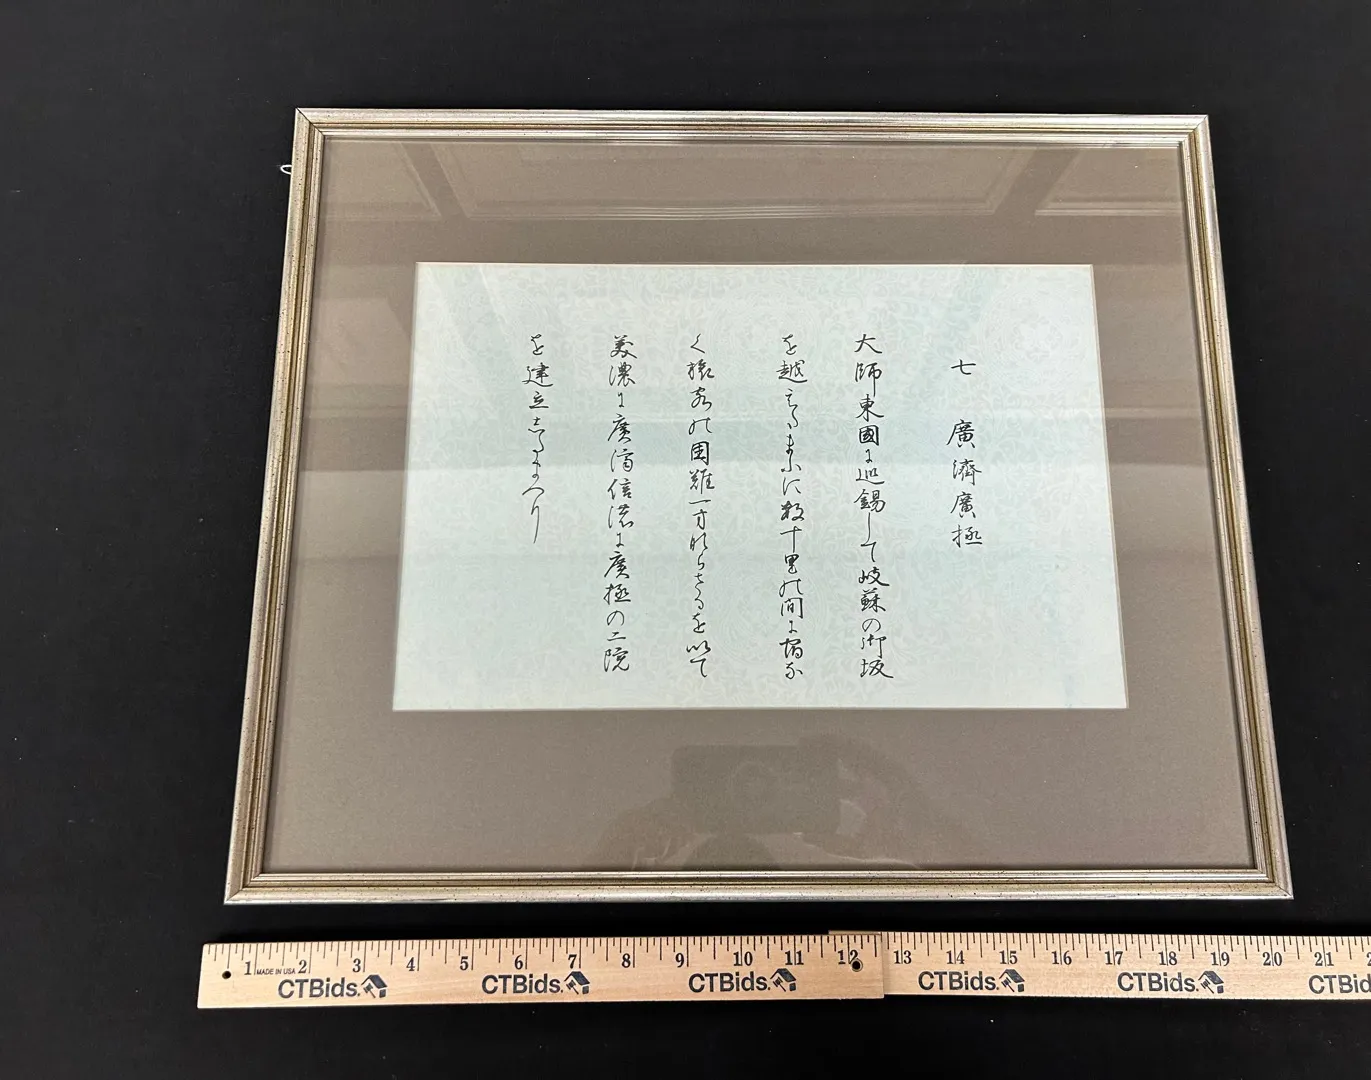 七 廣濟廣極
大師東國に巡錫して岐蘇の御坂
を越えたまふに数十里の間に宿な
く旅客の困難一方ならさるを以て
美濃に廣濟信濃に廣極の二院
を建立したまへり
1 MADE IN USA 2 3 4 5 6 7 8 9 10 11 12 13 14 15 16 17 18 19 20 21
CTBids. CTBids. CTBids. CTBids. CTBids. CTBids